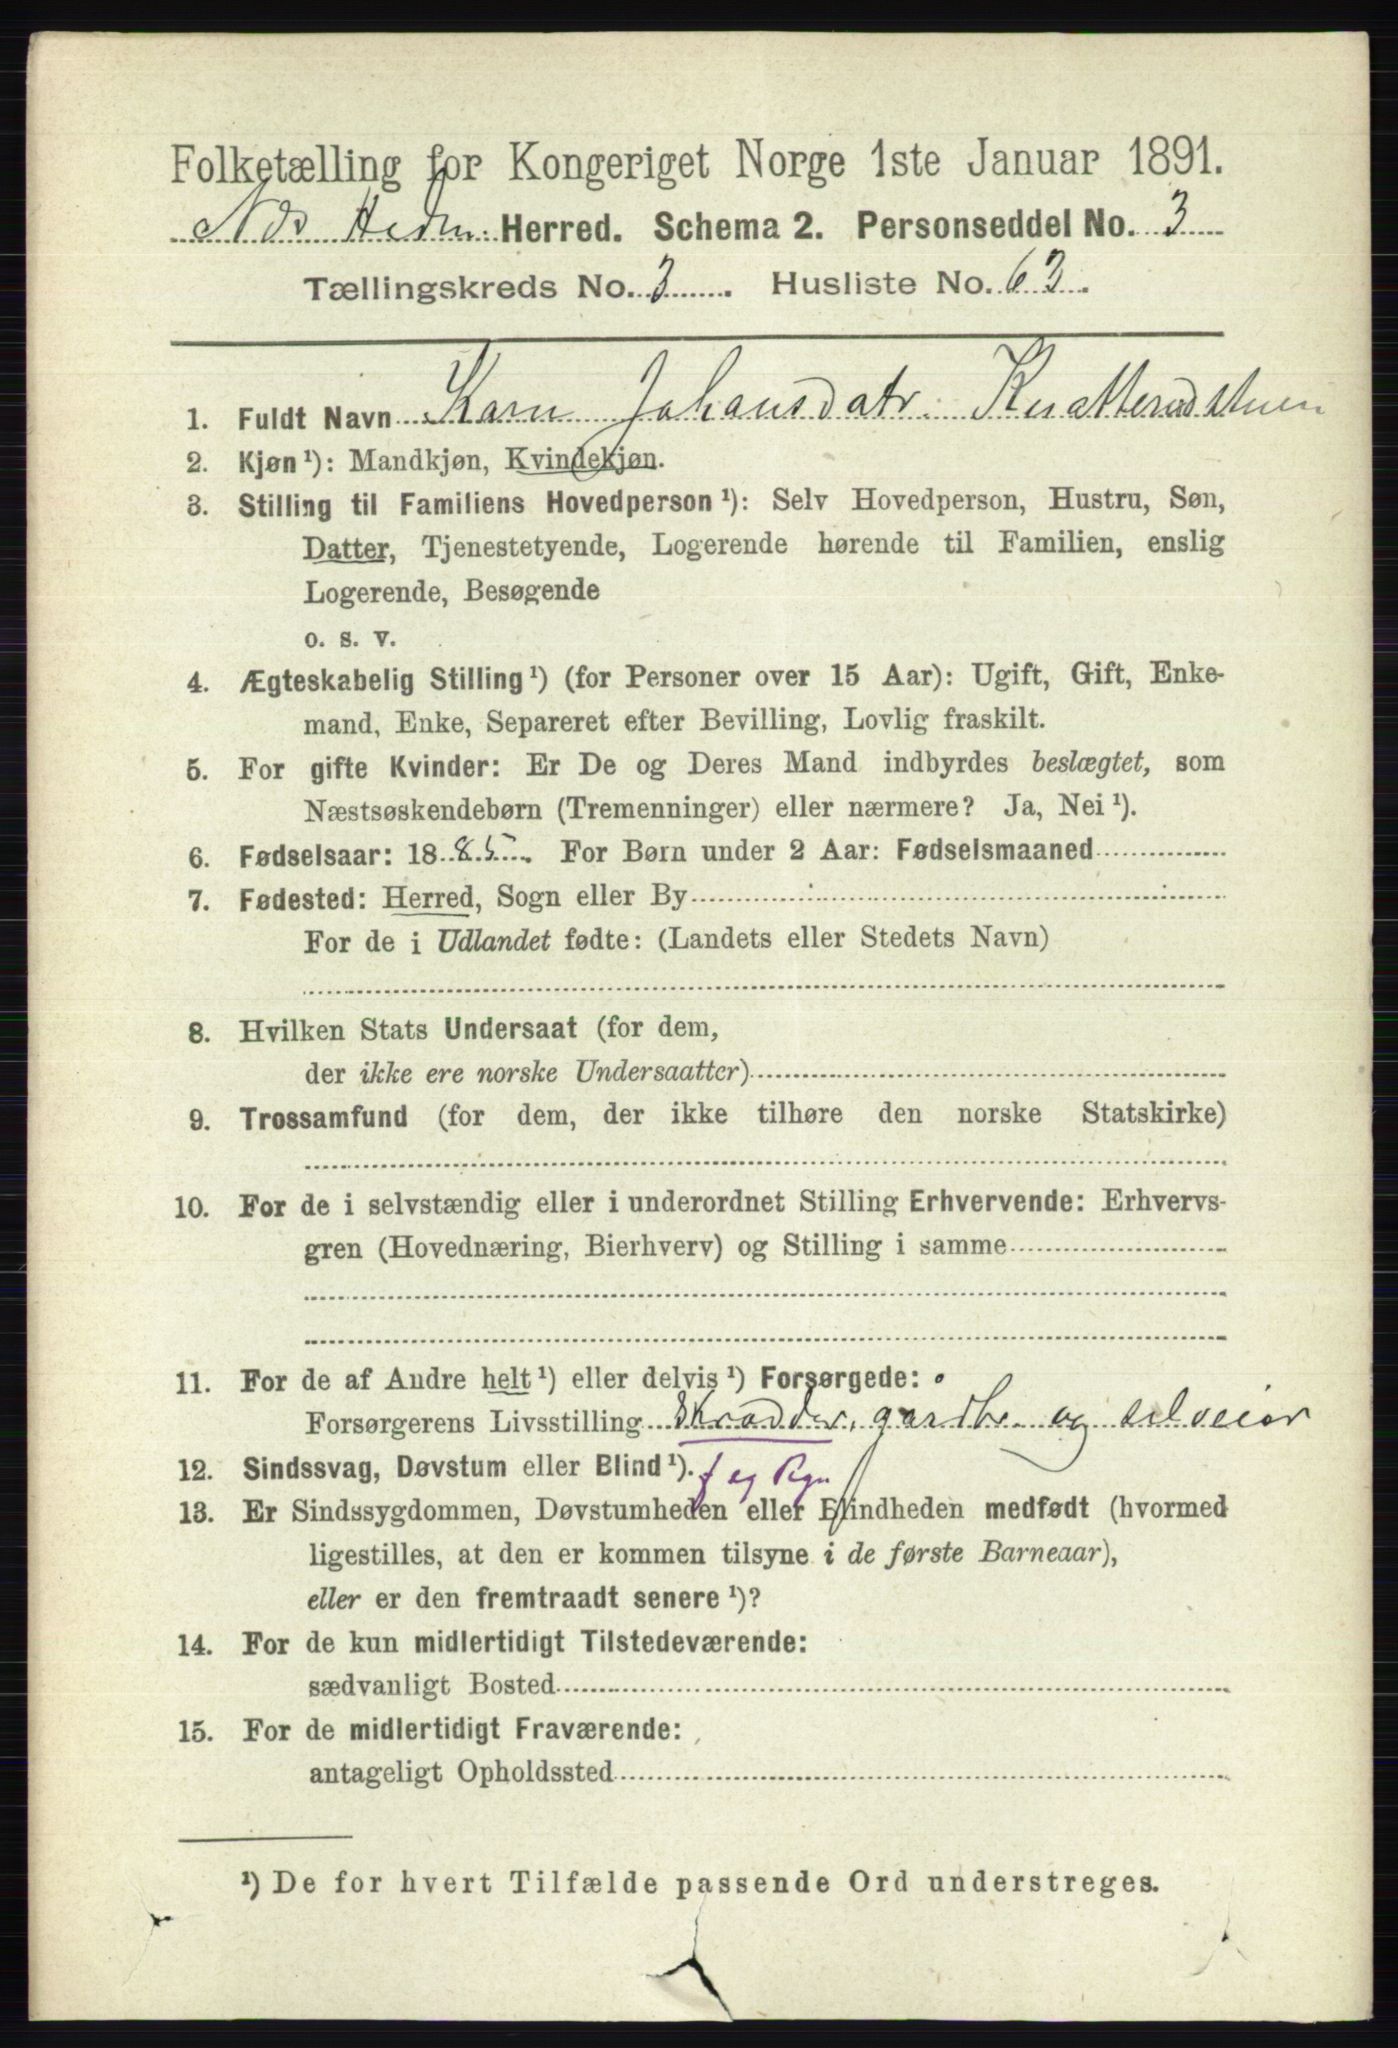 Folketælling for Kongeriget Norge 1ste Januar 1891.
Nes Hedm. Herred. Schema 2. Personseddel No. 3
Tællingskreds No. 3. Husliste No. 63.
1. Fuldt Navn Karn Johansdatr. Knatterudstuen
2. Kjøn ¹): Mandkjøn, Kvindekjøn.
3. Stilling til Familiens Hovedperson ¹): Selv Hovedperson, Hustru, Søn,
Datter, Tjenestetyende, Logerende hørende til Familien, enslig
Logerende, Besøgende
o. s. v.
4. Ægteskabelig Stilling ¹) (for Personer over 15 Aar): Ugift, Gift, Enke-
mand, Enke, Separeret efter Bevilling, Lovlig fraskilt.
5. For gifte Kvinder: Er De og Deres Mand indbyrdes beslægtet, som
Næstsøskendebørn (Tremenninger) eller nærmere? Ja, Nei ¹).
6. Fødselsaar: 1885. For Børn under 2 Aar: Fødselsmaaned
7. Fødested: Herred, Sogn eller By
For de i Udlandet fødte: (Landets eller Stedets Navn)
8. Hvilken Stats Undersaat (for dem,
der ikke ere norske Undersaatter)
9. Trossamfund (for dem, der ikke tilhøre den norske Statskirke)
10. For de i selvstændig eller i underordnet Stilling Erhvervende: Erhvervs-
gren (Hovednæring, Bierhverv) og Stilling i samme
11. For de af Andre helt ¹) eller delvis ¹) Forsørgede:
Forsørgerens Livsstilling Skrædder, gardbr. og selveier
12. Sindssvag, Døvstum eller Blind ¹).
13. Er Sindssygdommen, Døvstumheden eller Blindheden medfødt (hvormed
ligestilles, at den er kommen tilsyne i de første Barneaar),
eller er den fremtraadt senere ¹)?
14. For de kun midlertidigt Tilstedeværende:
sædvanligt Bosted
15. For de midlertidigt Fraværende:
antageligt Opholdssted
¹) De for hvert Tilfælde passende Ord understreges.